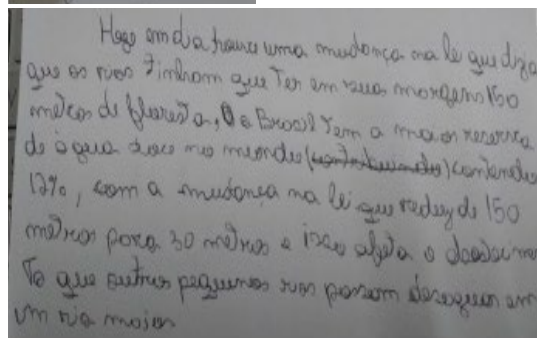 Hoje em dia houve uma mudança na lei que dizia
que os rios tinham que ter em suas margens 150
metros de floresta, O Brasil tem a maior reserva
de água doce no mundo contendo
12%, com a mudança na lei que reduz de 150
metros para 30 metros e isso afeta o
to que outros pequenos rios possam desaguar em
um rio maior